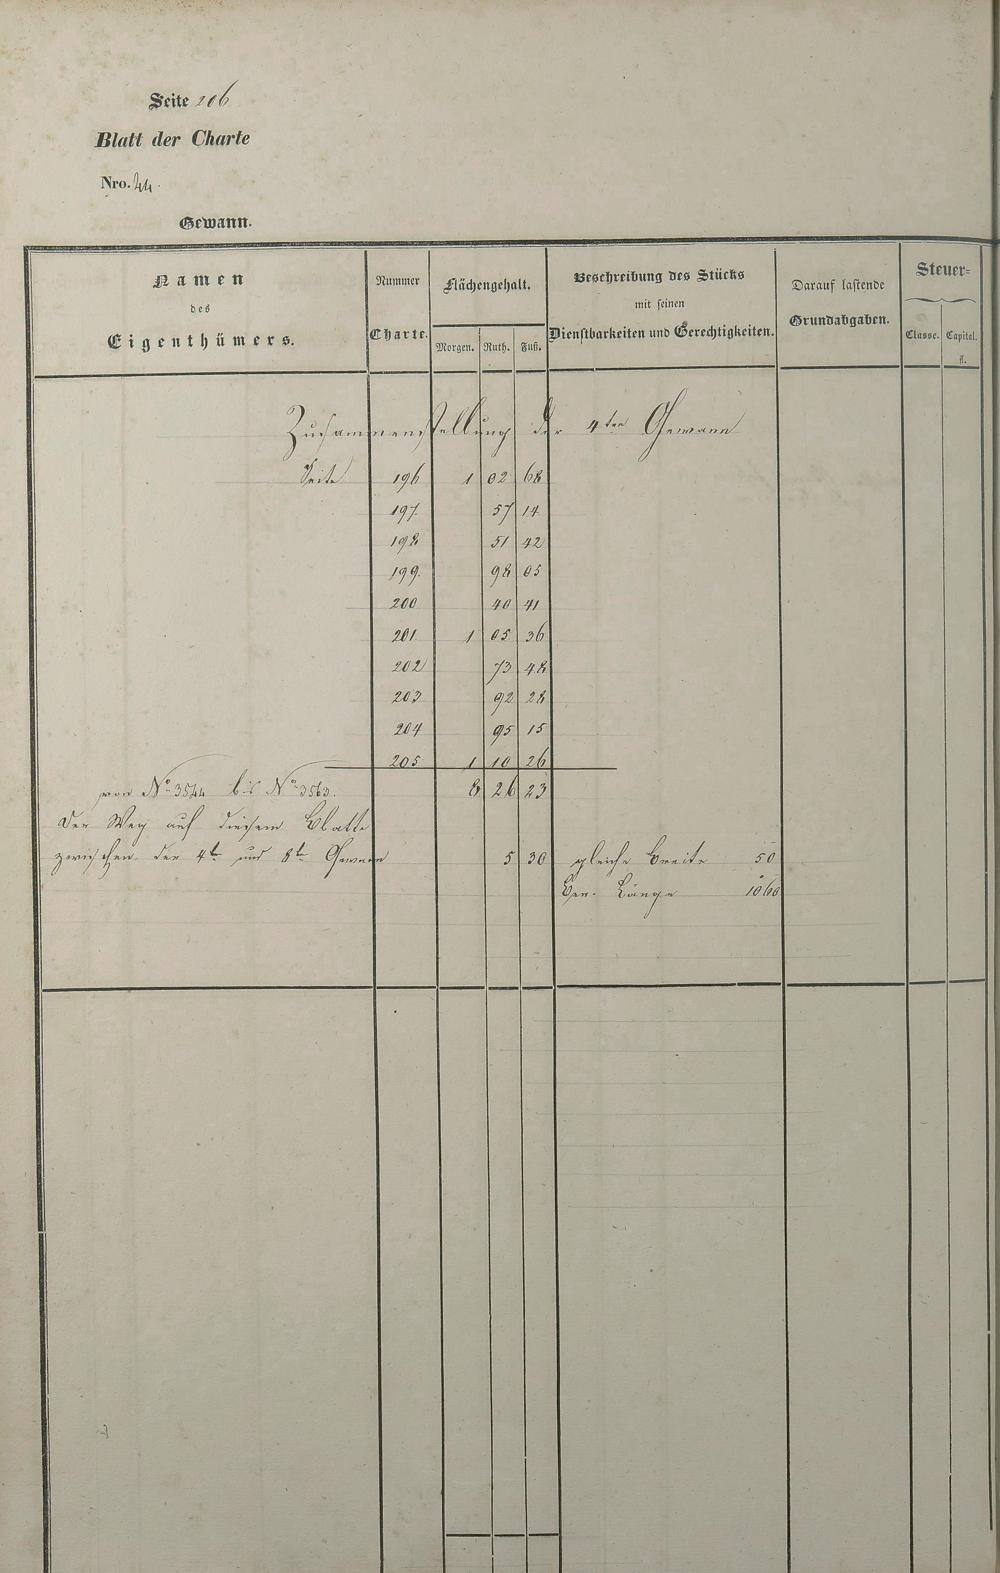 Seite 206
Blatt der Charte
Nro. 44.
Gewann.
Namen
des
Eigenthümers.
Nummer
Charte.
Flächengehalt.
Morgen. Ruth. Fuß.
Beschreibung des Stücks
mit seinen
Dienstbarkeiten und Gerechtigkeiten.
Darauf lastende
Grundabgaben.
Steuer=
Classe. Capital.
fl.
Zusammenstellung der 4ten Gewann
Seite 196 1 02 68
197. 57 14
198 51 42
199. 98 05
200 40 41
201 1 05 36
202 73 48
203 92 28
204 95 15
205 1 10 26
von No. 3544 bis No. 3563. 8 26 23
Der Weg auf diesem Blatte
zwischen der 4te und 8te Gewann 5 30 gleiche Breite 50
Ber. Länge 1060